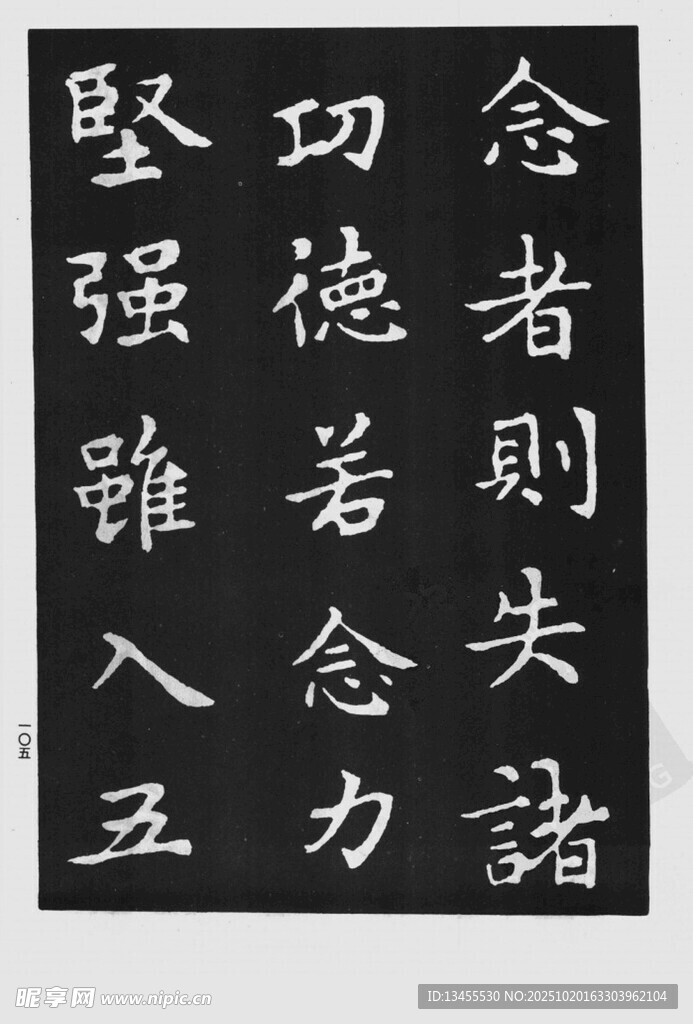 念者則失諸
功德若念力
堅强雖入五
一〇五
昵享网 www.nipic.cn
ID:13455530 NO:20251020163303962104